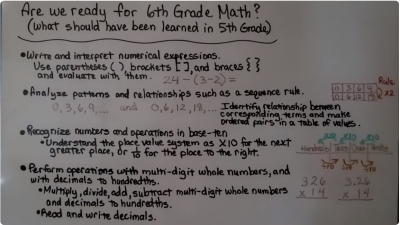 Are we ready for 6th Grade Math?
(what should have been learned in 5th Grade)
• Write and interpret numerical expressions.
Use parentheses ( ), brackets [ ], and braces { }
and evaluate with them. 24-(3-2)=
• Analyze patterns and relationships such as a sequence rule.
0, 3, 6, 9, ... and 0, 6, 12, 18, ... Identify relationship between
corresponding terms and make
ordered pairs in a table of values.
Rule
0 3 6 9
0 6 12 18 ×2
• Recognize numbers and operations in base-ten
• Understand the place value system as ×10 for the next
greater place, or 1/10 for the place to the right.
×10 ×10 ×10
Hundreds Tens Ones
÷10 ÷10 ÷10
• Perform operations with multi-digit whole numbers, and
with decimals to hundredths.
• Multiply, divide, add, subtract multi-digit whole numbers
and decimals to hundredths.
• Read and write decimals.
326 3.26
×14 ×14